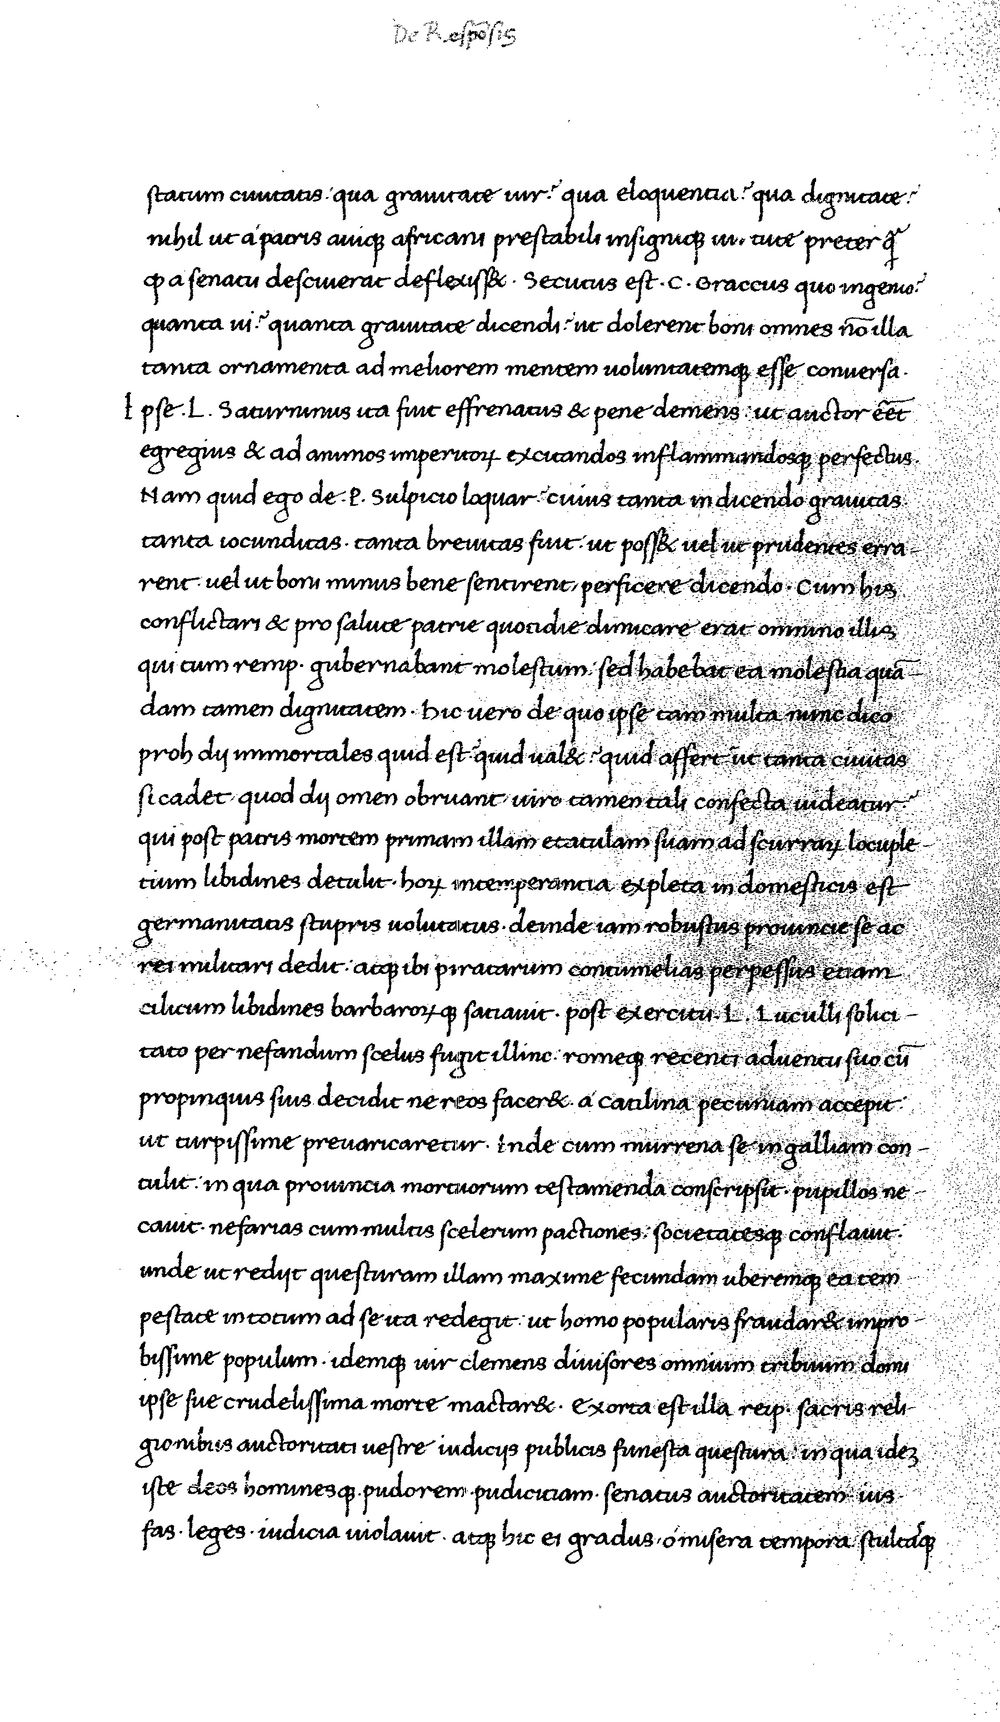 De Respōsis
statum ciuitatis· qua grauitate uir? qua eloquentia? qua dignitate?
nihil ut á patris auiqꝫ africani prestabili insigniqꝫ uirtute preter q̄
ꝙ a senatu desciuerat deflexiss&· Secutus est· C· Graccus quo ingenio?
quanta ui? quanta grauitate dicendi? ut dolerent boni omnes nō illa
tanta ornamenta ad meliorem mentem uoluntatemqꝫ esse conuersa·
Ipse· L· Saturninus ita fuit effrenatus & pene demens· ut auctor eēt
egregius & ad animos imperitoꝝ excitandos inflammandosqꝫ perfectus·
Nam quid ego de· P· Sulpicio loquar? cuius tanta in dicendo grauitas
tanta iocunditas· tanta breuitas fuit· ut poss& uel ut prudentes erra-
rent· uel ut boni minus bene sentirent, perficere dicendo· Cum his
conflictari & pro salute patrie quotidie dimicare erat omnino illis
qui tum remp· gubernabant molestum· sed habebat ea molestia quā-
dam tamen dignitatem· Hic uero de quo ipse tam multa nunc dico
proh dij immortales quid est? quid ual&? quid affert ut tanta ciuitas
si cadet· quod dij omen obruant· uiro tamen tali confecta uideatur?
qui post patris mortem primam illam etatulam suam ad scurraꝝ locuple-
tium libidines detulit· hoꝝ intemperantia expleta in domesticis est
germanitatis stupris uolutatus· deinde iam robustus prouincie se ac
rei militari dedit· atqꝫ ibi piratarum contumelias perpessus etiam
cilicum libidines barbaroꝝqꝫ satiauit· post exercitu· L· Luculli solici-
tato per nefandum scelus fugit illinc· romeqꝫ recenti aduentu suo cū
propinquis suis decidit ne reos facer&· á Catilina pecuniam accepit·
ut turpissime preuaricaretur· Inde cum murrena se in galliam con-
tulit· in qua prouincia mortuorum testamenda conscripsit· pupillos ne-
cauit· nefarias cum multis scelerum pactiones· societatesqꝫ conflauit·
unde ut redijt questuram illam maxime fecundam uberemqꝫ ea tem
pestate in totum ad se ita redegit· ut homo popularis fraudar& impro-
bissime populum· idemqꝫ uir clemens diuisores omnium tribuum domi
ipse sue crudelissima morte mactar&· Exorta est illa reip· sacris reli-
gionibus auctoritati uestre iudicijs publicis funesta questura· in qua ideꝫ
iste deos hominesqꝫ· pudorem· pudicitiam· senatus auctoritatem· ius·
fas· leges· iudicia uiolauit· atqꝫ hic ei gradus· ó misera tempora stultásqꝫ